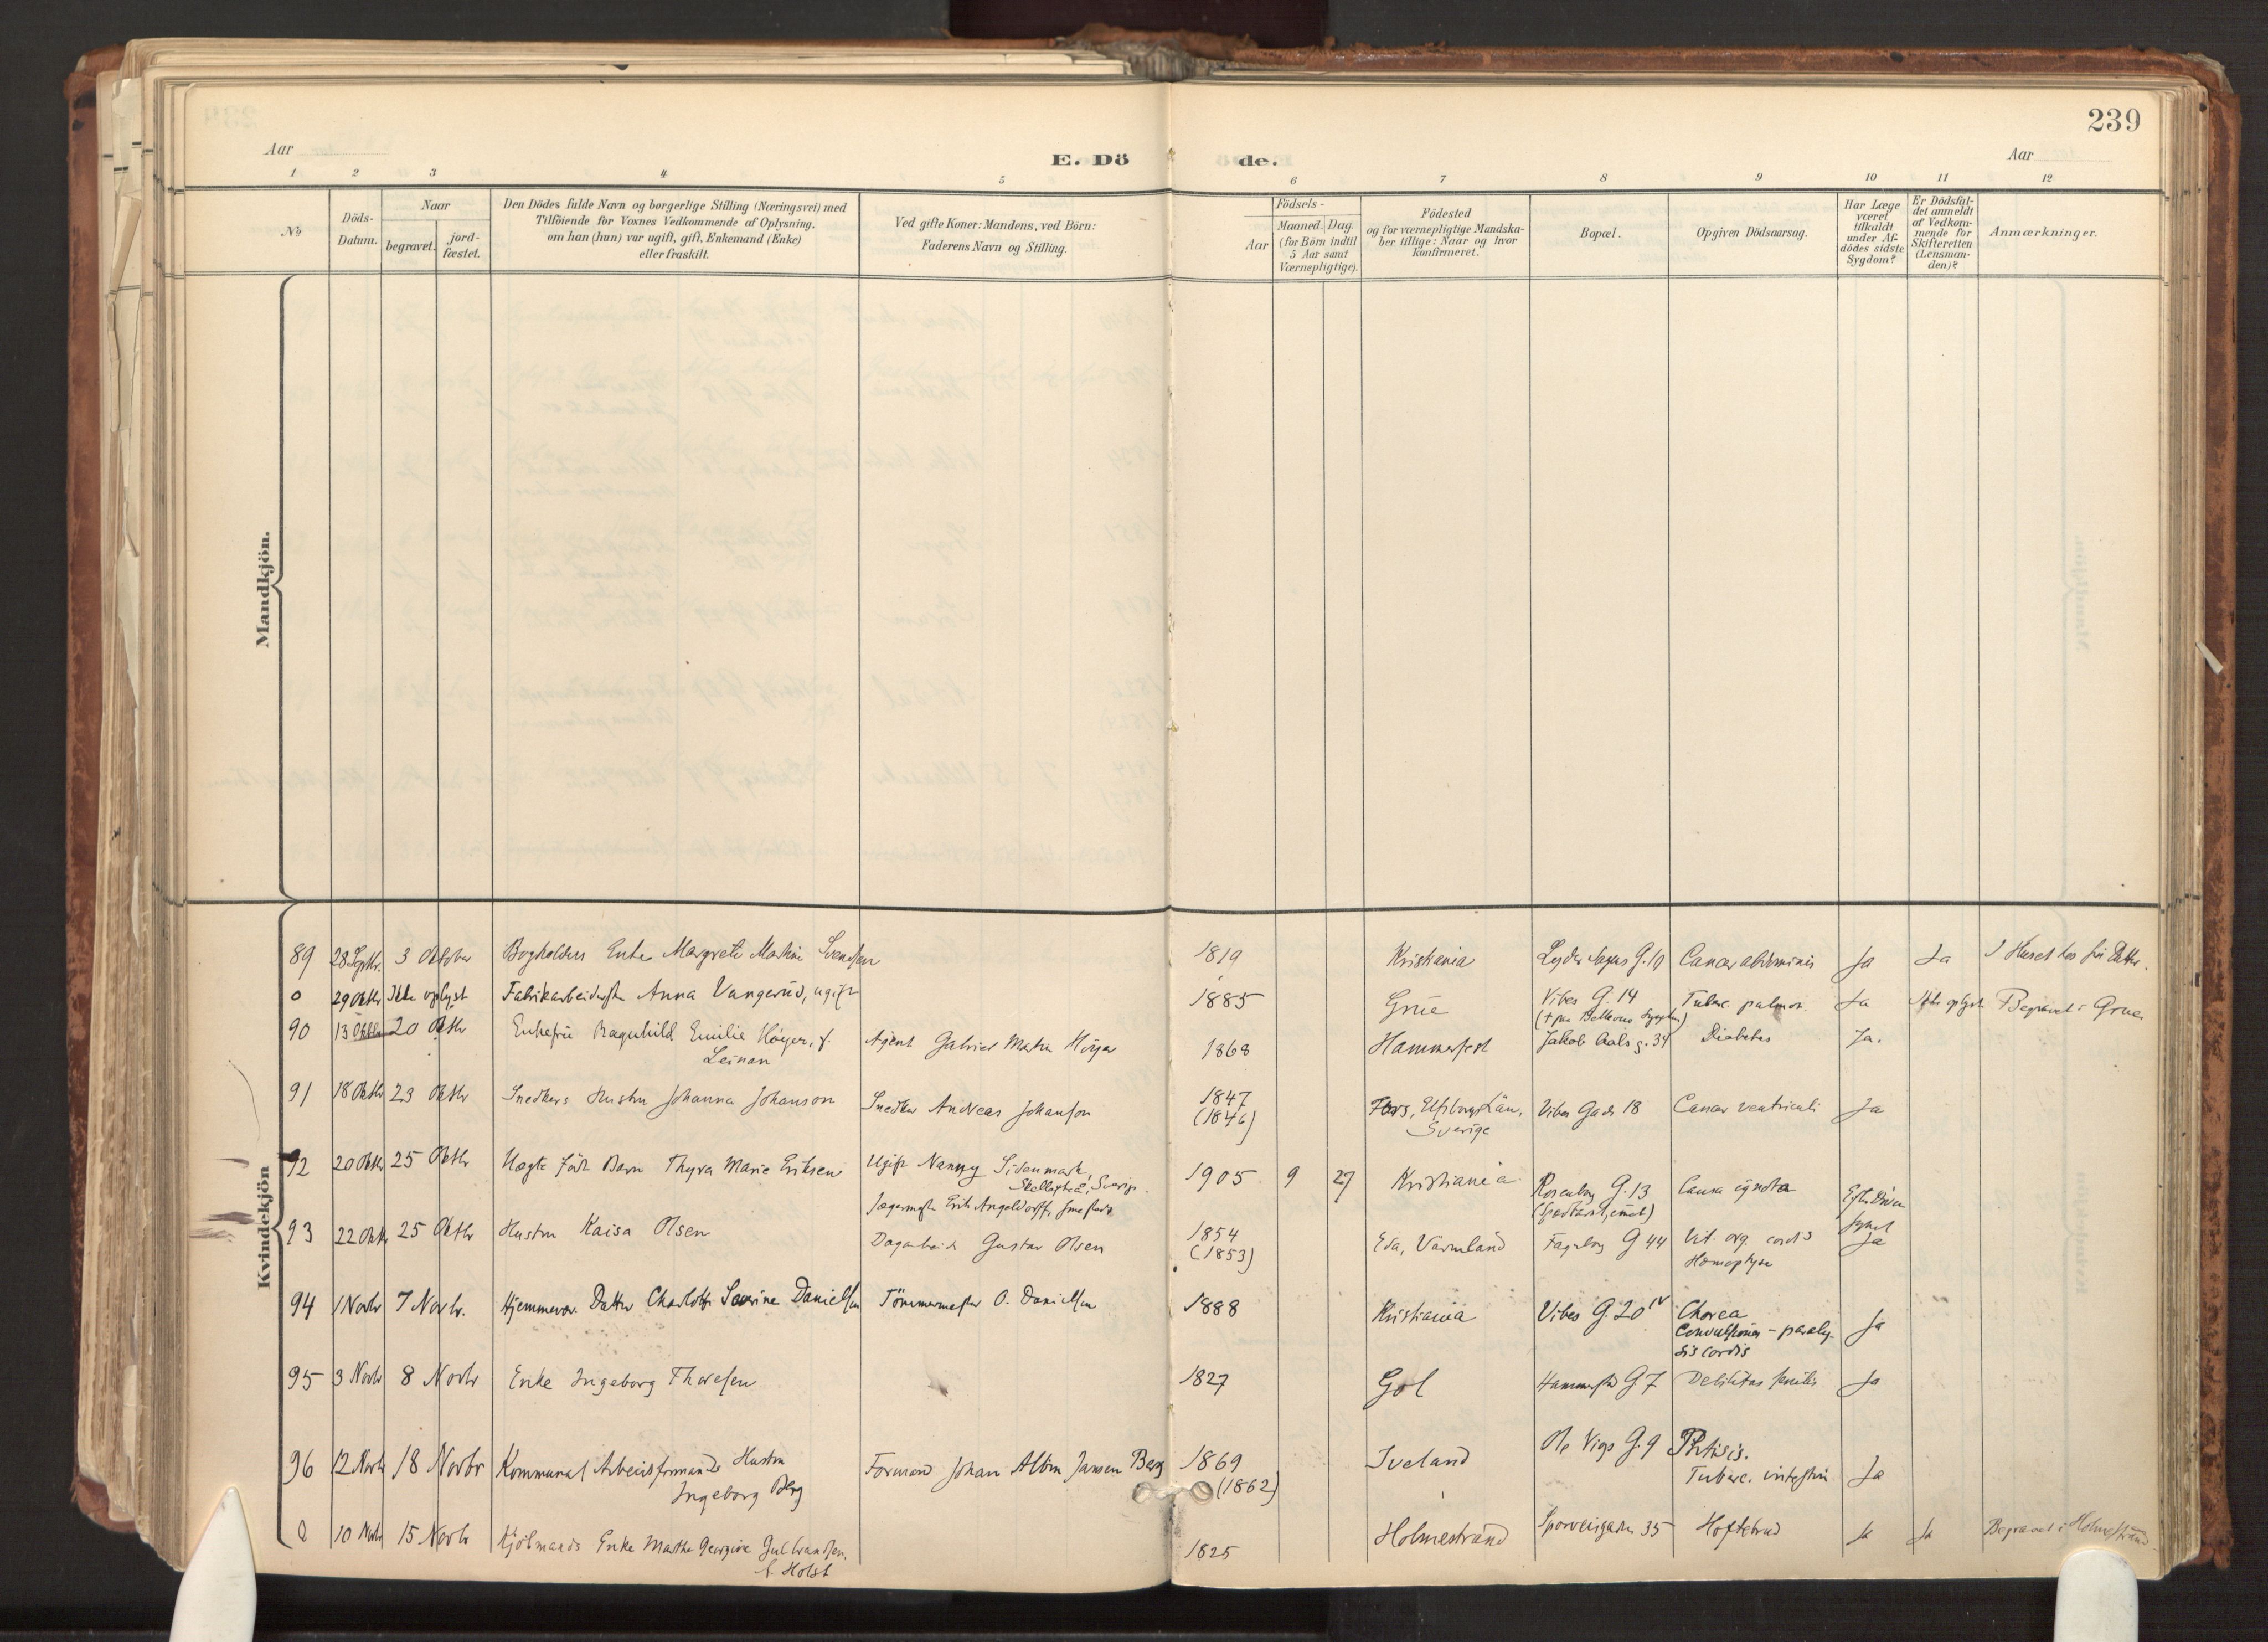 239
Aar
E. Dö
de.
Aar
1 2 3 4 5 6 7 8 9 10 11 12
№
Döds-
Datum.
Naar
begravet.
jord-
fæstet.
Den Dödes fulde Navn og borgerlige Stilling (Næringsvei) med
Tilföiende for Voxnes Vedkommende af Oplysning,
om han (hun) var ugift, gift, Enkemand (Enke)
eller fraskilt.
Ved gifte Koner: Mandens, ved Börn:
Faderens Navn og Stilling.
Födsels-
Aar
Maaned.
Dag.
(for Börn indtil
5 Aar samt
Værnepligtige).
Födested
og for værnepligtige Mandska-
ber tillige: Naar og hvor
konfirmeret.
Bopæl.
Opgiven Dödsaarsag.
Har Læge
været
tilkaldt
under Af-
dödes sidste
Sygdom?
Er Dödsfal-
det anmeldt
af Vedkom-
mende for
Skifteretten
(Lensman-
den)?
Anmærkninger.
Mandkjön.
Kvindekjön
89 28 Septbr. 3 Oktober Bogholders Enke Margrete Svendsen 1819 Kristiania G. 10 Cancer abdominis Ja Ja I Huset hos
0 29 Oktbr Ikke oplyst Fabrikarbeiderske Anna Vangerud, ugift 1885 Grue Vibes G. 14 Tuberc. pulmon. Ja Ikke oplyst Begravet i Grue
90 13 20 Oktbr Enkefru Ragnhild Emilie Höyer, f. Agent Gabriel Höyer 1868 Hammerfest Jakob Aals g. 34 Diabetes Ja.
Leinan
91 18 Oktbr 23 Oktbr Snedkers Hustru Johanna Johanson Snedker Andreas Johanson 1847 Fors, Elfsborgs Län, Vibes Gade 18 Cancer ventriculi Ja
(1846) Sverige
92 20 Oktbr 25 Oktbr Uægte født Barn Thyra Marie Eriksen Ugift Nanny Sidenmark, 1905 9 27 Kristiania Rosenborg G. 13 Causa ignota
Skellefteå, Sverige.
93 22 Oktbr 25 Oktbr Hustru Kaisa Olsen Gustav Olsen 1854 Eda, Värmland Fagerborg G 44 Vit. org. cordis Ja
(1853) Hæmoptyse
94 1 Novbr 7 Novbr. Hjemmevær. Datter Charlotte Severine Danielsen Tömmermester O. Danielsen 1888 Kristiania Vibes G. 20 IV Chorea
Convulsiones - paraly- Ja
sis cordis
95 3 Novbr 8 Novbr Enke Ingeborg Thoresen 1827 Gol G 7 Debilitas senilis Ja
96 12 Novbr 18 Novbr Kommunal Arbeidsformands Hustru Formand Johan Albin Jansen Berg 1869 Iveland Ole Vigs G. 9 Phtisis.
Ingeborg Berg (1862) Tuberc. intestin Ja
0 10 Novbr 15 Novbr Enke Marthe Georgine Gulbrandsen. 1825 Holmestrand Sporveisgaden 35 Hoftebrud Ja Ja Begravet i Holmestrand
f. Holst